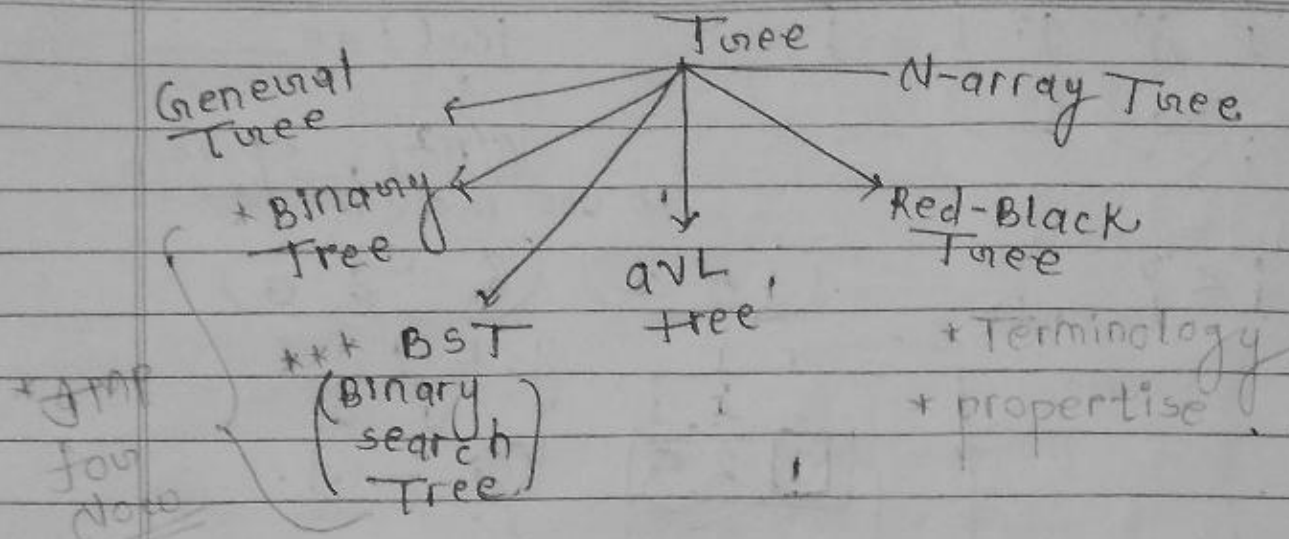 Tree
General
Tree
N-array Tree
* Binary
Tree
Red-Black
Tree
AVL
tree
*** BST
(Binary
search
Tree)
* Terminology
* propertise
* Imp
for
Now